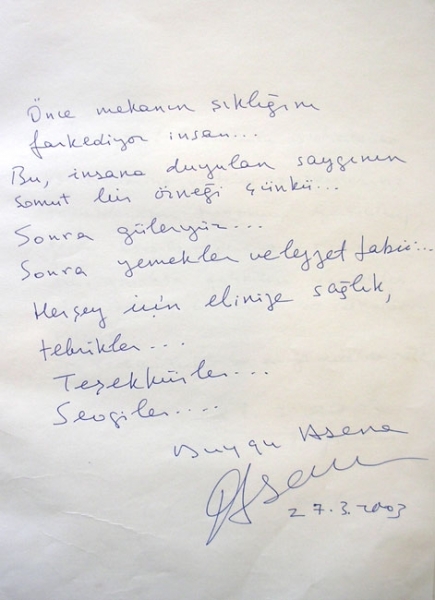 Önce mekanın şıklığını
farkediyor insan...
Bu, insana duyulan saygının
somut bir örneği çünkü...
Sonra güleryüz...
Sonra yemekler ve lezzet tabii...
Herşey için elinize sağlık,
tebrikler...
Teşekkürler...
Sevgiler....
Duygu Asena
DAsena
27.3.2003